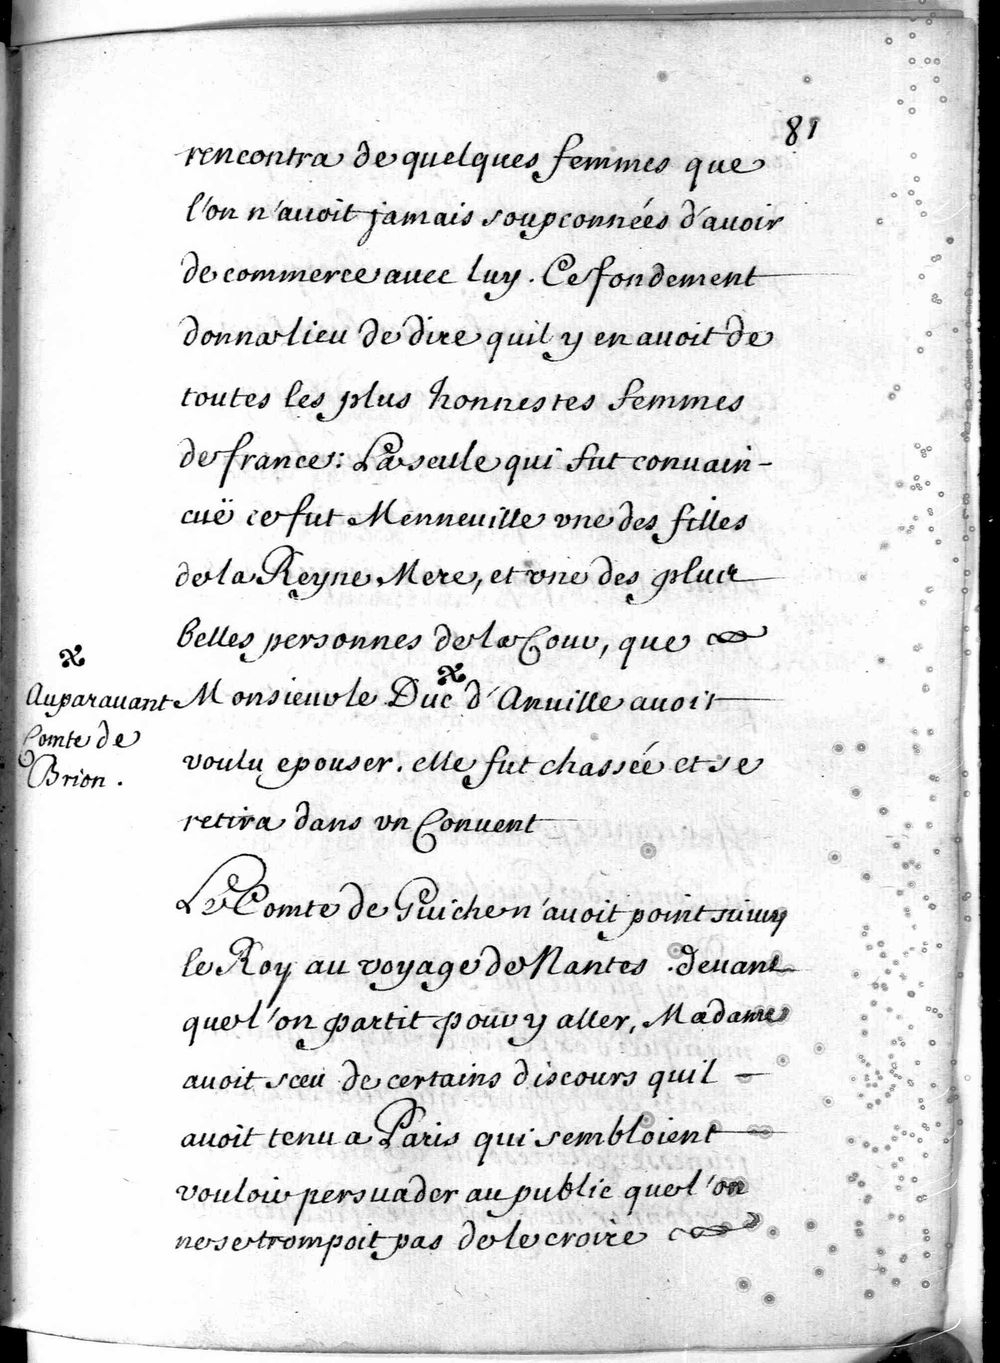 81
rencontra de quelques femmes que
l'on n'auoit jamais soupçonnées d'auoir
de commerce auec luy. Ce fondement
donna lieu de dire quil y en auoit de
toutes les plus honnestes femmes
de france: La seule qui fut conuain-
cuë ce fut Menneuille vne des filles
de la Reyne Mere, et vne des plus
belles personnes de la Cour, que
Monsieur le Duc d'Anuille auoit
Auparauant
Comte de
Brion.
voulu epouser. elle fut chassée et se
retira dans vn Conuent
Le Comte de Guiche n'auoit point suiuy
le Roy au voyage de Nantes. deuant
que l'on partit pour y aller, Madame
auoit sceu de certains discours quil
auoit tenu a Paris qui sembloient
vouloir persuader au public que l'on
ne se trompoit pas de le croire